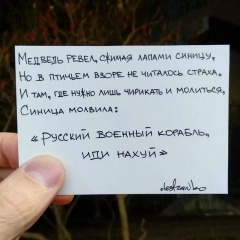 Медведь ревел, сжимая лапами синицу,
Но в птичьем взоре не читалось страха.
И там, где нужно лишь чирикать и молиться,
Синица молвила:
«Русский военный корабль,
иди нахуй»